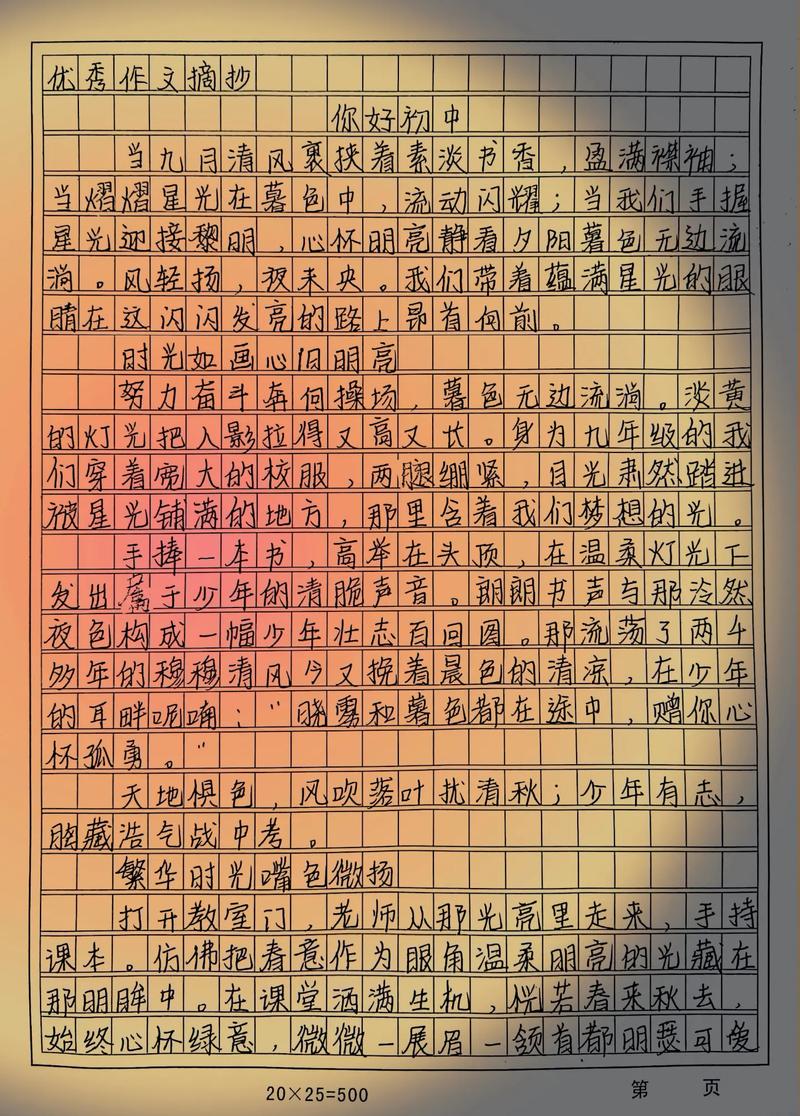 优秀作文摘抄
你好初中
当九月清风裹挟着素淡书香，盈满襟袖；
当熠熠星光在暮色中，流动闪耀；当我们手握
星光迎接黎明，心怀明亮静看夕阳暮色无边流
淌。风轻扬，夜未央。我们带着蕴满星光的眼
睛在这闪闪发亮的路上昂首向前。
时光如画心旧明亮
努力奋斗奔向操场，暮色无边流淌。淡黄
的灯光把人影拉得又高又长。身为九年级的我
们穿着宽大的校服，两腿绷紧，目光肃然踏进
被星光铺满的地方，那里含着我们梦想的光。
手捧一本书，高举在头顶，在温柔灯光下
发出属于少年的清脆声音。朗朗书声与那泠然
夜色构成一幅少年壮志百回图。那流荡了两千
多年的穆穆清风今又挽着晨色的清凉，在少年
的耳畔呢喃："晓雾和暮色都在途中，赠你心
怀孤勇。"
天地俱色，风吹落叶扰清秋；少年有志，
胸藏浩气战中考。
繁华时光嘴色微扬
打开教室门，老师从那光亮里走来，手持
课本。仿佛把春意作为眼角温柔明亮的光藏在
那明眸中。在课堂洒满生机，恍若春来秋去，
始终心怀绿意，微微一展眉一颔首都明瑟可爱
20×25=500
第 页